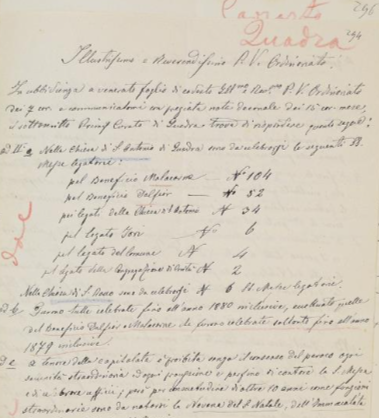 296
Panarto
Quadra 294
Illustrissimo e Reverendissimo P. V. Ordinariato.
In ubbidienza a venerato foglio di codesto Ill.mo Rev.mo P. V. Ordinariato
dei 7 cor. e comunicatomi con pregiata nota decanale dei 15 cor. mese,
il sottoscritto Curato di Quadra trova di rispondere quanto segue:
Nella Chiesa di S. Antonio di Quadra sono da celebrarsi le seguenti
Messe legatarie:
pel Beneficio Malacarne — N° 104
pel Beneficio Dalfior — N° 52
pei legati della Chiesa S. Antonio N 34
pel legato N° 6
pel legato del Comune N 4
pel legato della Congregazione di Carità N 2
Nella Chiesa di S. sono da celebrarsi N 6 Messe legatarie.
doc
Furono tutte celebrate fino all'anno 1880 inclusive, eccettuate quelle
del Beneficio Dalfior e Malacarne che furono celebrate soltanto fino all'anno
1879 inclusive.
a tenore della capitolate è proibita senza il consenso del parroco ogni
solennità straordinaria ed ogni processione e perfino di cantare la S. Messa
però per consuetudine d'oltre 10 anni come funzioni
straordinarie sono da notarsi la Novena del S. Natale, dell'Immacolata